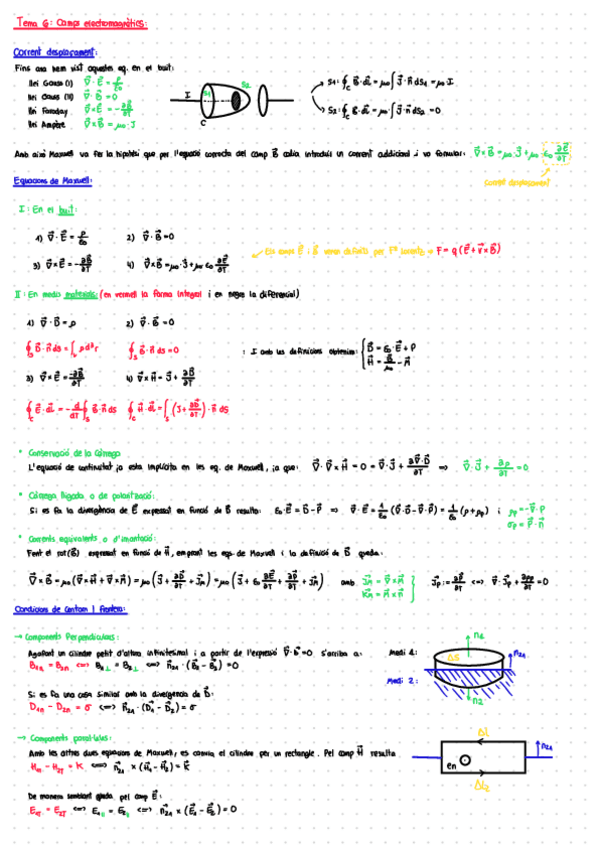 Tema 6: Camps electromagnètics:
Corrent desplaçament:
Fins ara hem vist aquestes eq. en el buit:
llei Gauss (I) ∇·E = ρ/ε₀
llei Gauss (II) ∇·B = 0
llei Faraday ∇×E = -∂B/∂T
llei Ampère ∇×B = μ₀·J
I S1 S2 C
S1: ∮c B·dL = μ₀∫J·n ds1 = μ₀·I
S2: ∮c B·dL = μ₀∫J·n ds2 = 0
Amb això Maxwell va fer la hipòtesi que per l'equació correcta del camp B calia introduir un corrent addicional i va formular: ∇×B = μ₀·J + μ₀·ε₀ ∂E/∂T
Corrent desplaçament
Equacions de Maxwell:
I: En el buit:
1) ∇·E = ρ/ε₀ 2) ∇·B = 0
3) ∇×E = -∂B/∂T 4) ∇×B = μ₀·J + μ₀ ε₀ ∂E/∂T
Els camps E i B venen definits per Fª Lorentz: F = q(E + v×B)
II: En medis materials: (en vermell la forma integral i en negre la diferencial)
1) ∇·D = ρ 2) ∇·B = 0
∮s D·n ds = ∫v ρ d³r ∮s B·n ds = 0
: I amb les definicions obtenim: D = ε₀·E + P
H = B/μ₀ - M
3) ∇×E = -∂B/∂T 4) ∇×H = J + ∂D/∂T
∮c E·dL = -d/dT ∫s B·n ds ∮c H·dL = ∫s (J + ∂D/∂T)·n ds
* Conservació de la Càrrega
L'equació de continuïtat ja està implícita en les eq. de Maxwell, ja que: ∇·∇×H = 0 = ∇·J + ∂∇·D/∂T ⇒ ∇·J + ∂ρ/∂T = 0
* Càrrega lligada o de polarització:
Si es fa la divergència de E expressat en funció de D resulta: ε₀·E = D - P ⇒ ∇·E = 1/ε₀ (∇·D - ∇·P) = 1/ε₀ (ρ + ρp) i ρp = -∇·P
σp = P·n
* Corrents equivalents o d'imantació:
Fent el rot(B) expressat en funció de H, emprant les eqs. de Maxwell i la definició de D queda:
∇×B = μ₀(∇×H + ∇×M) = μ₀(J + ∂D/∂T + Jm) = μ₀(J + ε₀ ∂E/∂T + ∂P/∂T + Jm) amb Jm = ∇×M
Km = M×n
Jp := ∂P/∂T ⇔ ∇·Jp + ∂ρp/∂T = 0
Condicions de Contorn i frontera:
→ Components Perpendiculars:
Agafant un cilindre petit d'altura infinitesimal i a partir de l'expressió ∇·B = 0 s'arriba a:
B1n = B2n ⇔ B1⊥ = B2⊥ ⇔ n21·(B1 - B2) = 0
Medi 1: Medi 2: n1 ΔS n21 n2
Si es fa una cosa similar amb la divergència de D:
D1n - D2n = σ ⇔ n21·(D1 - D2) = σ
→ Components paral·leles:
Amb les altres dues equacions de Maxwell, es canvia el cilindre per un rectangle. Pel camp H resulta
H1T - H2T = K ⇔ n21 × (H1 - H2) = K
ΔL en n21 ΔL2
De manera semblant queda pel camp E:
E1T = E2T ⇔ E1∥ = E2∥ ⇔ n21 × (E1 - E2) = 0